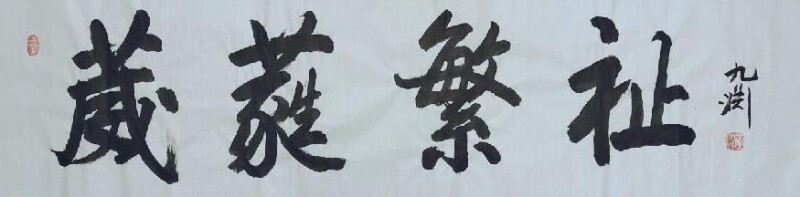 葳蕤繁祉
九洲